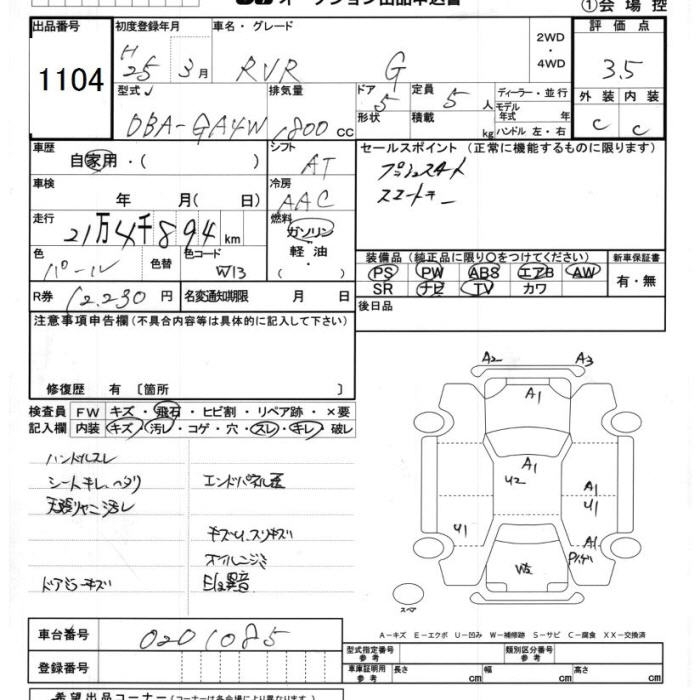 オークション出品申込書
①会場控
出品番号 初度登録年月 車名・グレード 2WD・4WD 評価点
1104 H25 3月 RVR G 3.5
型式 排気量 ドア 定員 ディーラー・並行 外装 内装
DBA-GA4W 1800cc 5 5人 モデル年式 年 C C
形状 積載 kg ハンドル 左・右
車歴 自家用・( ) シフト AT セールスポイント (正常に機能するものに限ります)
プッシュスタート
車検 年 月( 日) 冷房 AAC
走行 21万4千894km 燃料 ガソリン・軽油・( )
色 パール 色替 色コード W13
装備品 (純正品に限り〇をつけてください) 新車保証書
PS PW ABS エアB AW 有・無
SR ナビ TV カワ
R券 12,230円 名変通知期限 月 日 後日品
注意事項申告欄 (不具合内容等は具体的に記入して下さい)
修復歴 有 〔箇所 〕
検査員記入欄 FW キズ・飛石・ヒビ割・リペア跡・×要
内装 キズ・汚レ・コゲ・穴・スレ・キレ・破レ
ハンドルスレ
シートキレ、ヘタリ エンドパネル歪
天張シャニ汚レ
キズU、スリキズ
オイルニジミ
ドアミラーキズ E/g異音
A2 A3
A1
A1
U2
A1
U1
U1
A1
W2
スペア
A-キズ E-エクボ U-凹み W-補修跡 S-サビ C-腐食 XX-交換済
車台番号 0201085
型式指定番号 参考 類別区分番号 参考
登録番号 車庫証明用 参考 長さ cm 幅 cm 高さ cm
希望出品コーナー (コーナーは各会場により異なります)